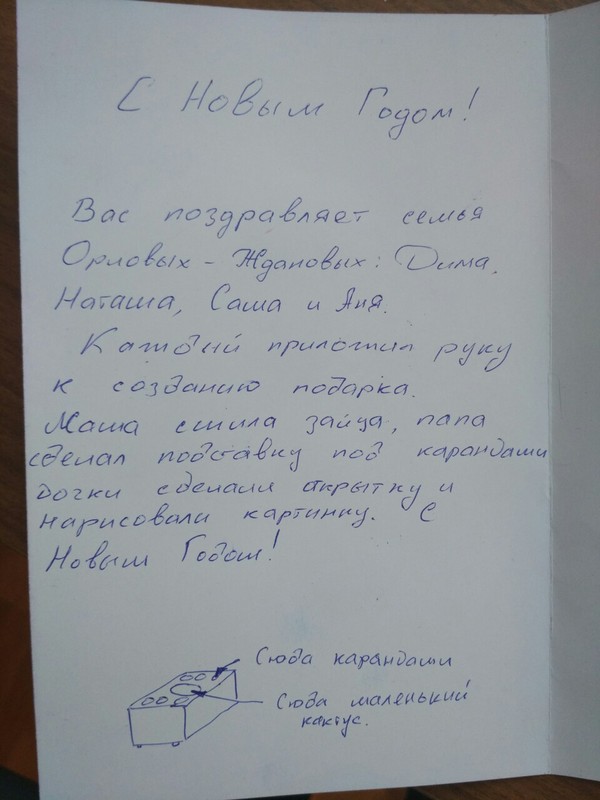 С Новым Годом!
Вас поздравляет семья
Орловых - Ждановых: Дима,
Наташа, Саша и Аня.
Каждый приложил руку
к созданию подарка.
Маша сшила зайца, папа
сделал подставку под карандаши
дочки сделали открытку и
нарисовали картинку. С
Новым Годом!
Сюда карандаши
Сюда маленький
кактус.